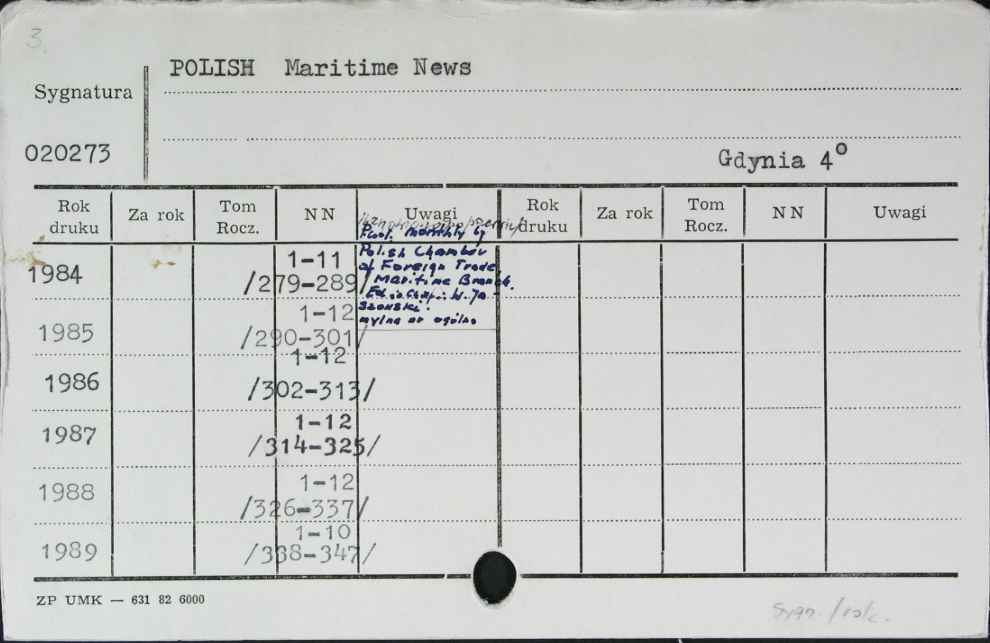 3.
POLISH Maritime News
Sygnatura
020273
Gdynia 4°
Rok druku Za rok Tom Rocz. NN Uwagi Rok druku Za rok Tom Rocz. NN Uwagi
Publ. monthly by
Polish Chamber
of Foreign Trade
Maritime Branch.
1984 1-11
/279-289/
1985 1-12
/290-301/
1986 1-12
/302-313/
1987 1-12
/314-325/
1988 1-12
/326-337/
1989 1-10
/338-347/
ZP UMK — 631 82 6000
Sygn.